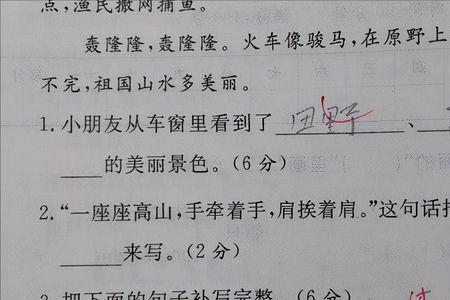 点,渔民撒网捕鱼。
轰隆隆,轰隆隆。火车像骏马,在原野上
不完,祖国山水多美丽。
1.小朋友从车窗里看到了 田野 、
的美丽景色。(6分)
2.“一座座高山,手牵着手,肩挨着肩。”这句话把
来写。(2分)
3.把下面的句子补写完整。(6分)